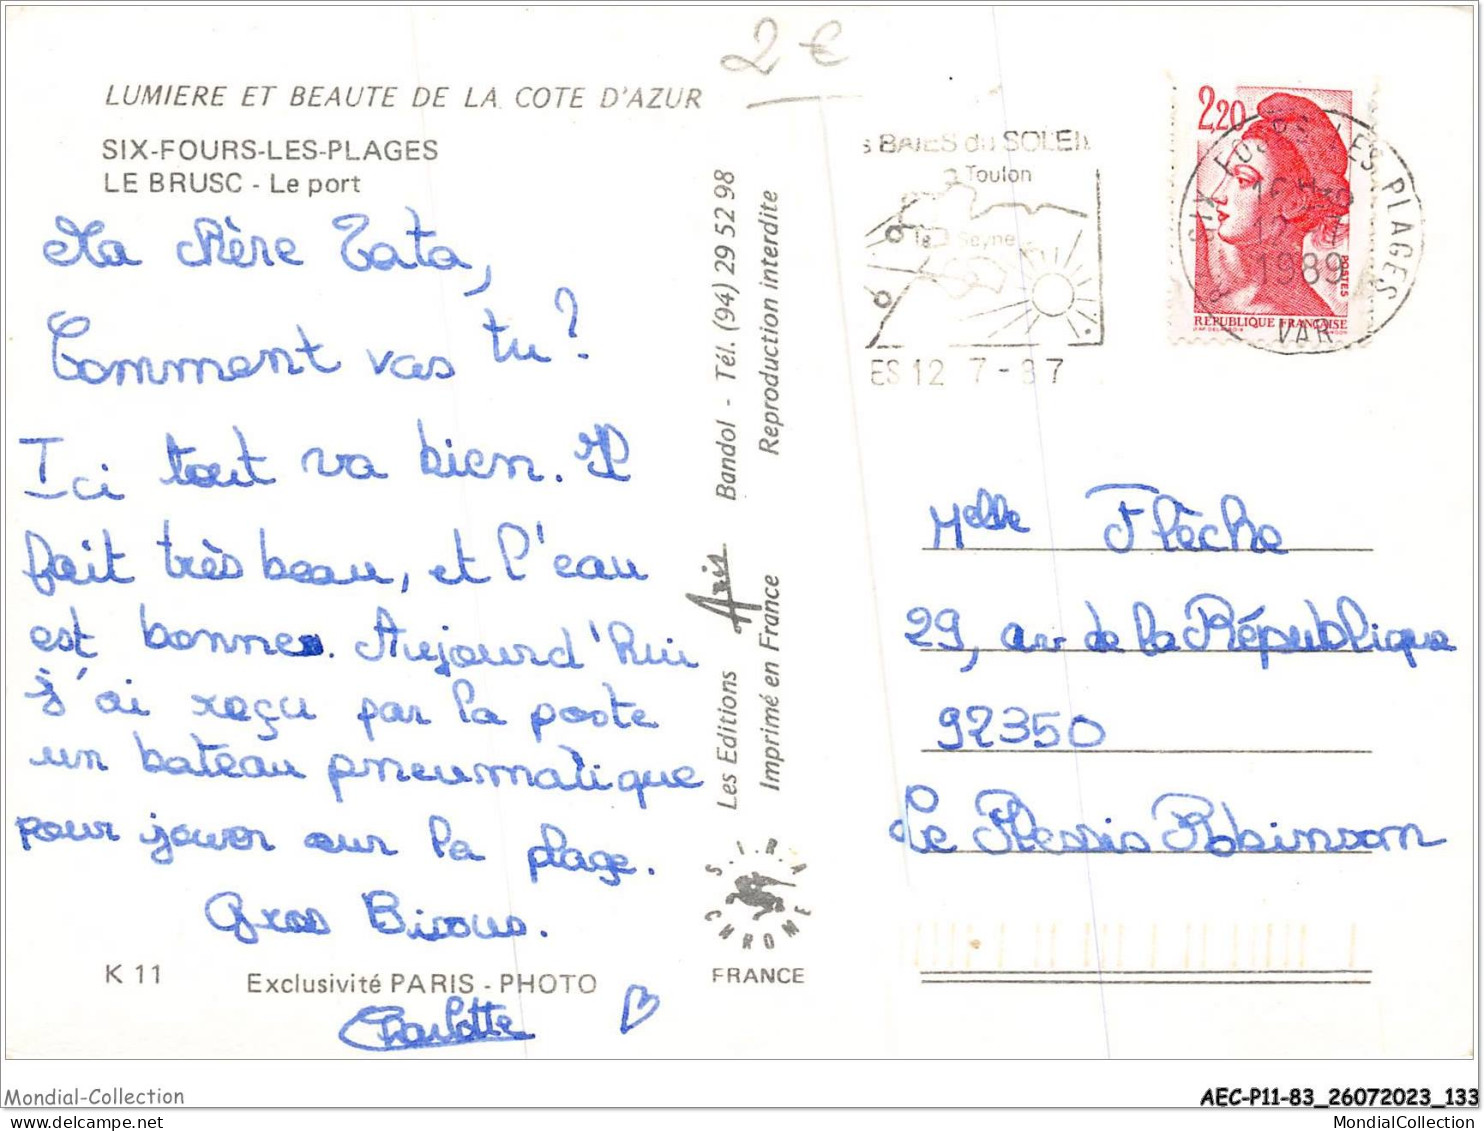 2€
LUMIERE ET BEAUTE DE LA COTE D'AZUR
SIX-FOURS-LES-PLAGES
LE BRUSC - Le port
Ma chère Tata,
Comment vas tu?
Ici tout va bien. Il
fait très beau, et l'eau
est bonne. Aujourd'hui
j'ai reçu par la poste
un bateau pneumatique
pour jouer sur la plage.
Gros Bisous.
K 11
Exclusivité PARIS - PHOTO
Charlotte
Les Editions Aris Bandol - Tél. (94) 29 52 98
Imprimé en France Reproduction interdite
S.I.R.A
CHROME
FRANCE
s BAIES du SOLEIL
Toulon
la Seyne
ES 12 7-87
2,20
POSTES
RÉPUBLIQUE FRANÇAISE
SIX FOURS LES PLAGES
1989
VAR
Melle Flèche
29, av de la République
92350
Le Plessis Robinson
Mondial-Collection
AEC-P11-83_26072023_133
MondialCollection